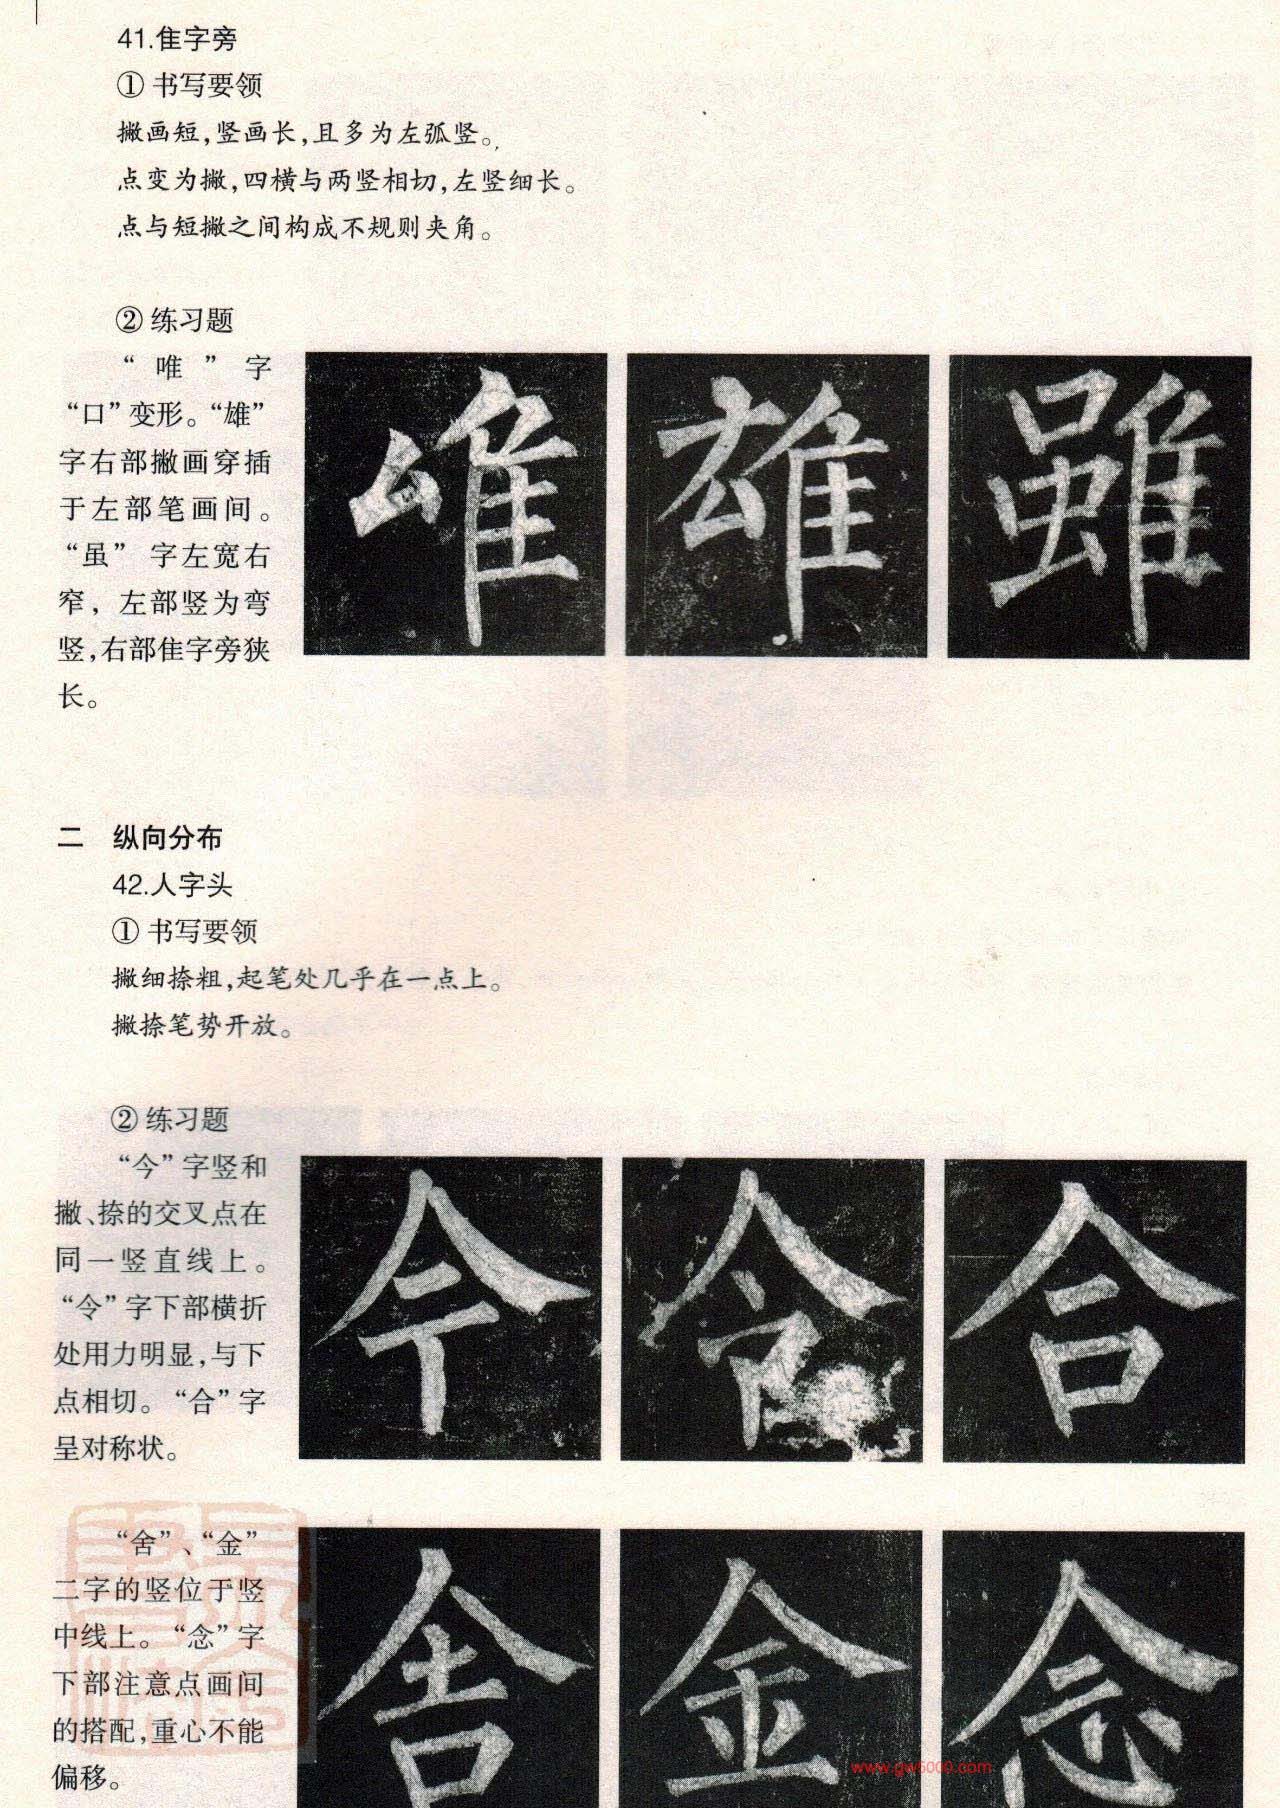 41.隹字旁
① 书写要领
撇画短,竖画长,且多为左弧竖。
点变为撇,四横与两竖相切,左竖细长。
点与短撇之间构成不规则夹角。
② 练习题
“唯”字
“口”变形。“雄”
字右部撇画穿插
于左部笔画间。
“虽”字左宽右
窄,左部竖为弯
竖,右部隹字旁狭
长。
唯 雄 雖
二 纵向分布
42.人字头
① 书写要领
撇细捺粗,起笔处几乎在一点上。
撇捺笔势开放。
② 练习题
“今”字竖和
撇、捺的交叉点在
同一竖直线上。
“令”字下部横折
处用力明显,与下
点相切。“合”字
呈对称状。
今 令 合
“舍”、“金”
二字的竖位于竖
中线上。“念”字
下部注意点画间
的搭配,重心不能
偏移。
舍 金 念
www.gw5000.com